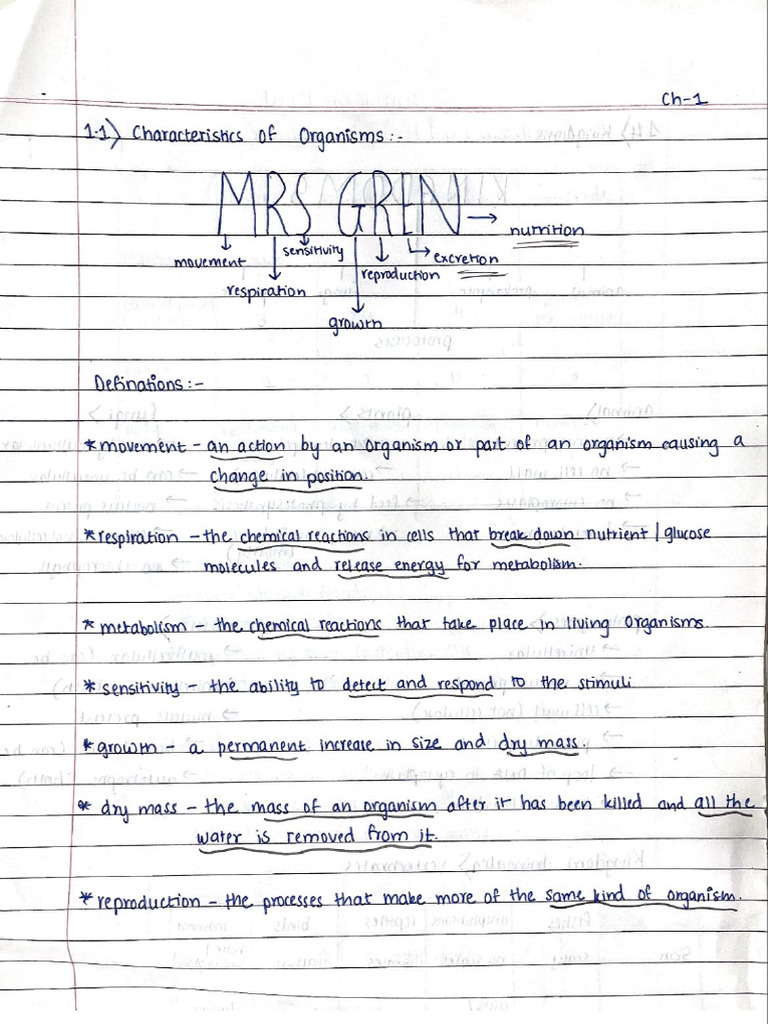 Ch-1
1.1) Characteristics of Organisms:-
MRS GREN → nutrition
movement
sensitivity
excretion
reproduction
respiration
growth
Definations:-
*movement - an action by an organism or part of an organism causing a
change in position.
*respiration - the chemical reactions in cells that break down nutrient / glucose
molecules and release energy for metabolism.
*metabolism - the chemical reactions that take place in living organisms.
*sensitivity - the ability to detect and respond to the stimuli
*growth - a permanent increase in size and dry mass.
* dry mass - the mass of an organism after it has been killed and all the
water is removed from it.
*reproduction - the processes that make more of the same kind of organism.